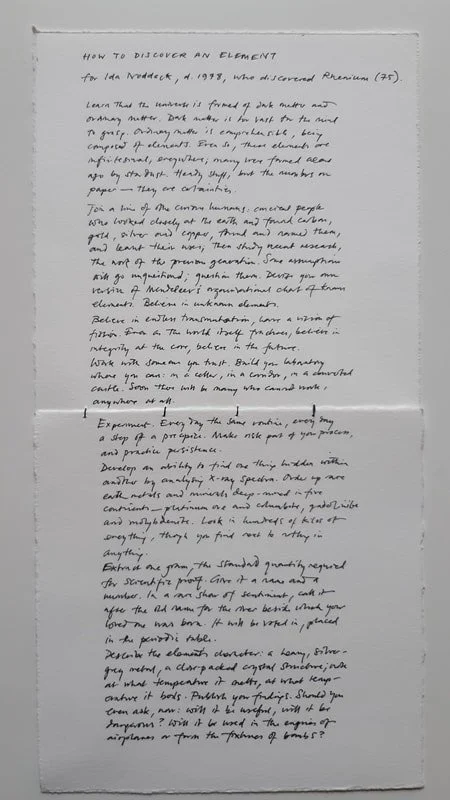 HOW TO DISCOVER AN ELEMENT
for Ida Noddack, d. 1978, who discovered Rhenium (75).
Learn that the universe is formed of dark matter and
ordinary matter. Dark matter is too vast for the mind
to grasp. Ordinary matter is comprehensible, being
composed of elements. Even so, these elements are
infinitesimal, everywhere; many were formed aeons
ago by stardust. Heady stuff, but the numbers on
paper — they are certainties.
Join a line of other curious humans: ancient people
who looked closely at the earth and found carbon,
gold, silver and copper, found and named them,
and learnt their uses; then study recent research,
the work of the previous generation. Some assumptions
will go unquestioned; question them. Devise your own
version of Mendeleev's organisational chart of known
elements. Believe in unknown elements.
Believe in endless transmutation, have a vision of
fission. Even as the world itself fractures, believe in
integrity at the core, believe in the future.
Work with someone you trust. Build your laboratory
where you can: in a cellar, in a corridor, in a converted
castle. Soon there will be many who cannot work,
anywhere at all.
Experiment. Every day the same routine, every day
a step off a precipice. Make risk part of your process,
and practice persistence.
Develop an ability to find one thing hidden within
another by analysing X-ray spectra. Order up rare
earth metals and minerals deep-mined in five
continents — platinum ore and columbite, gadolinite
and molybdenite. Look in hundreds of kilos of
everything, though you find next to nothing in
anything.
Extract one gram, the standard quantity required
for scientific proof. Give it a name and a
number. In a rare show of sentiment, call it
after the old name for the river beside which your
loved one was born. It will be voted in, placed
in the periodic table.
Describe the element's character: a heavy, silver-
grey metal, a close-packed crystal structure; note
at what temperature it melts, at what temp-
erature it boils. Publish your findings. Should you
even ask, now: will it be useful, will it be
dangerous? Will it be used in the engines of
airplanes or form the fixtures of bombs?